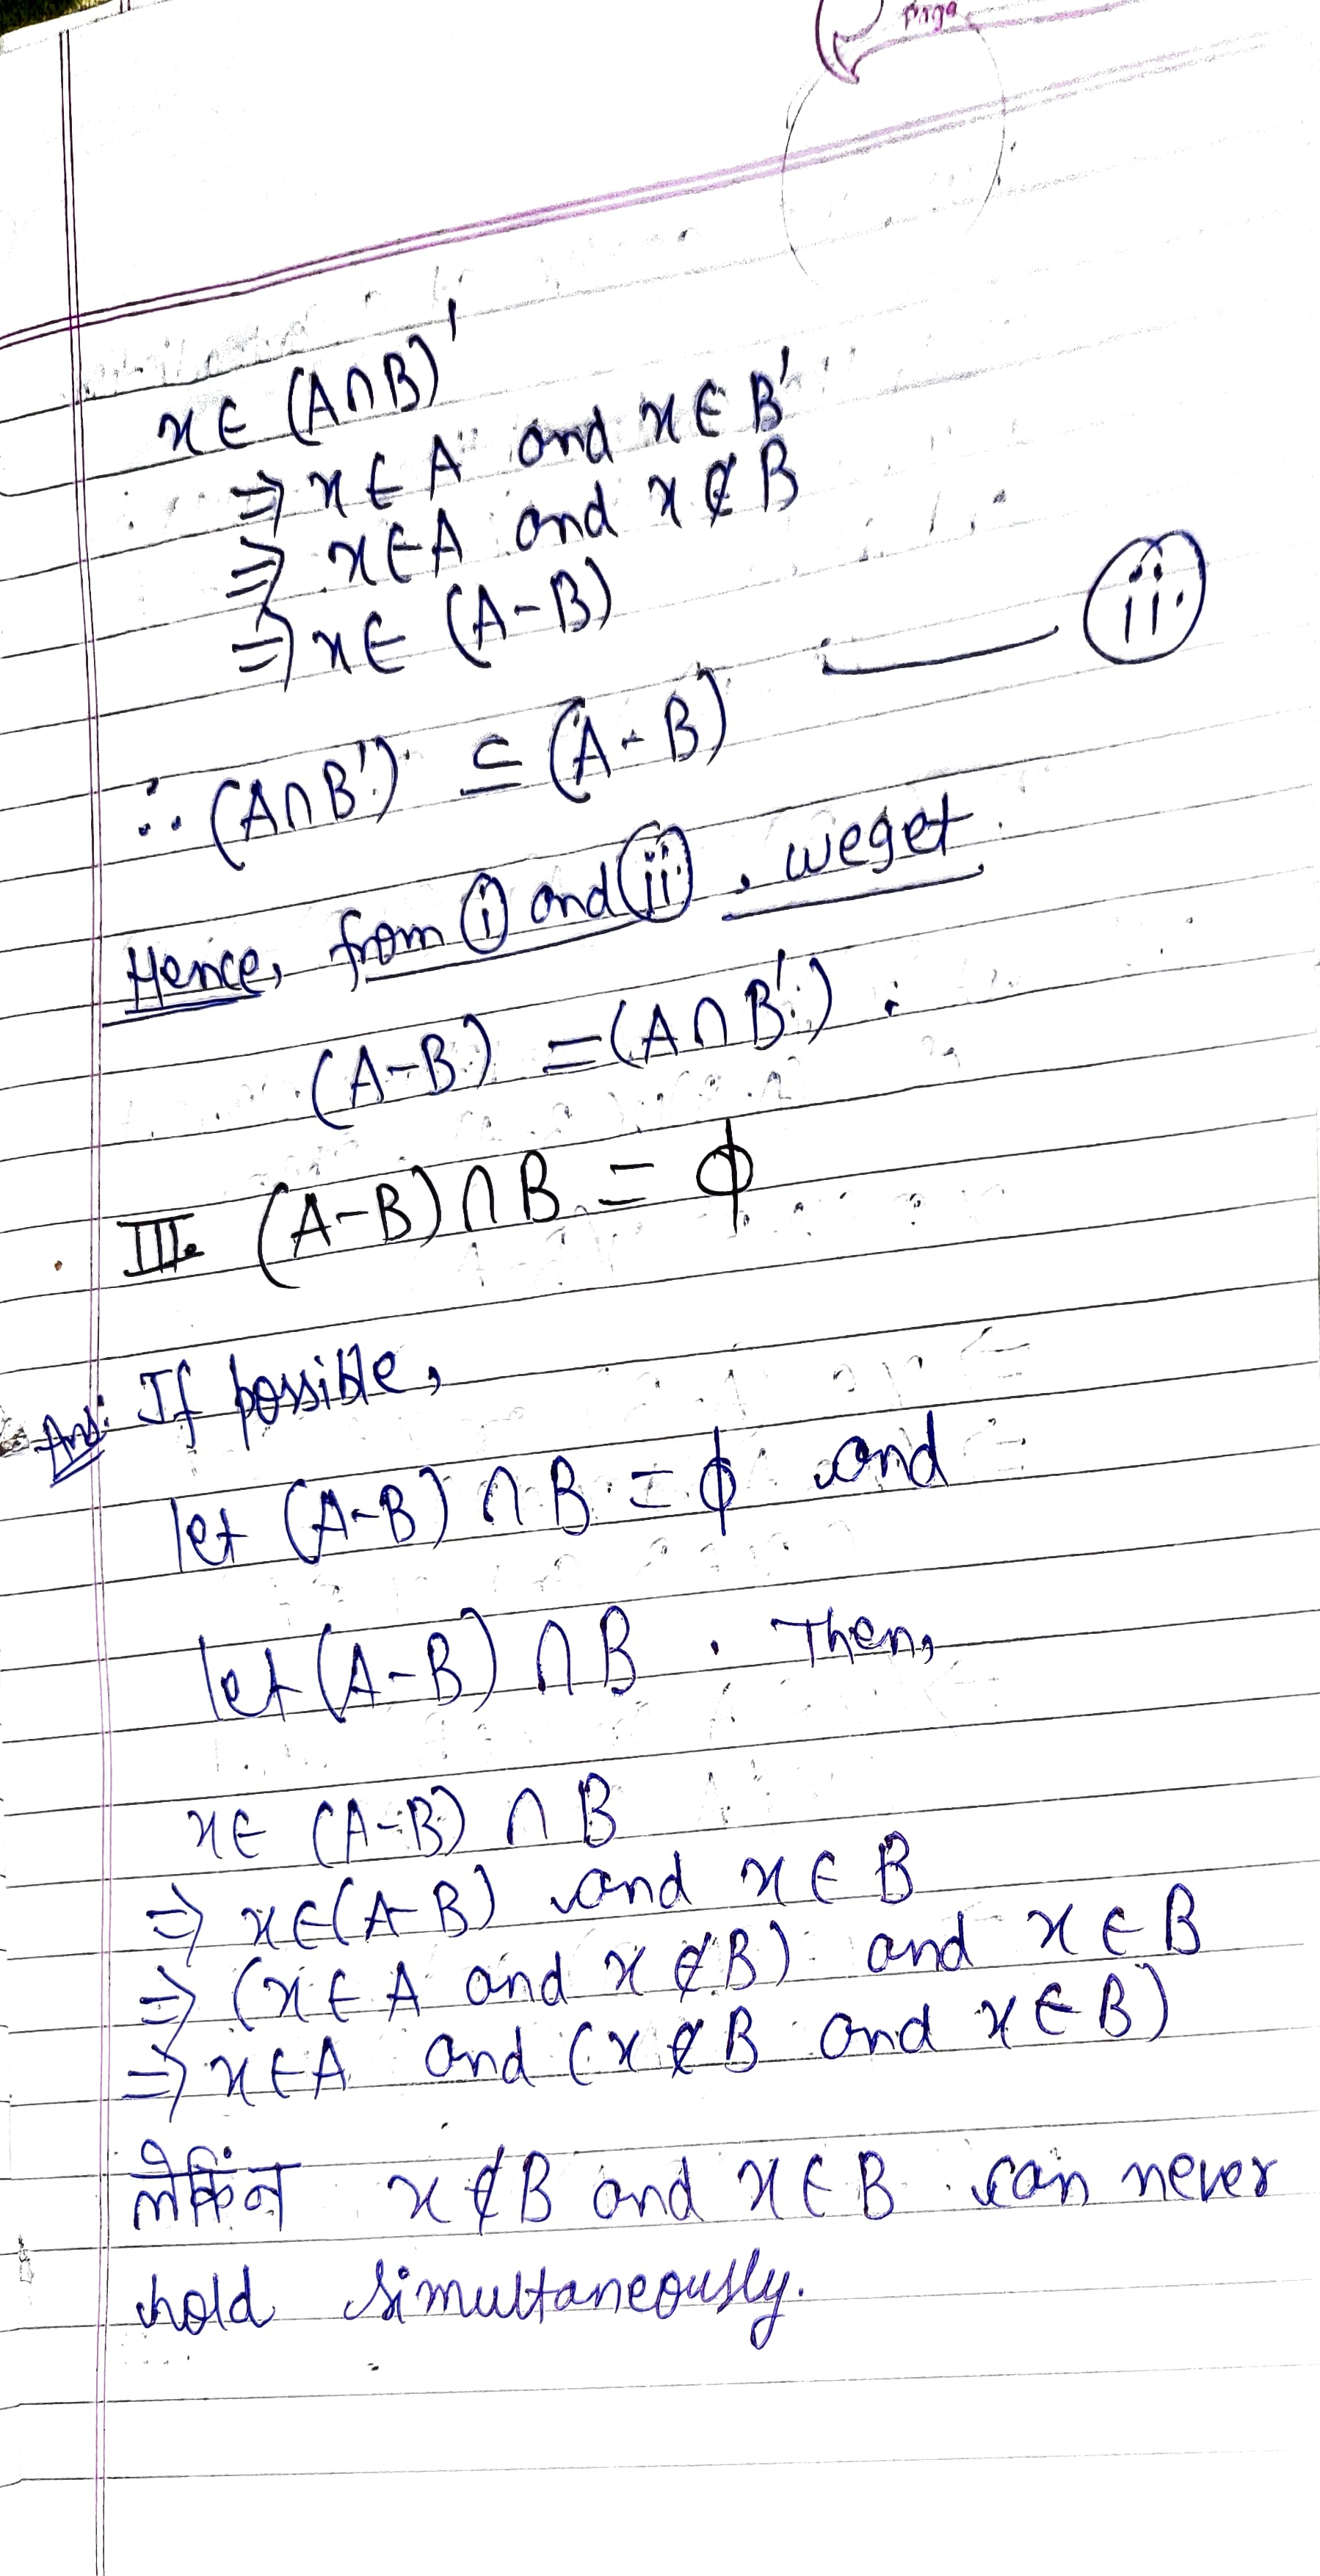 x ∈ (A∩B)'
⇒ x ∈ A and x ∈ B'
⇒ x ∈ A and x ∉ B
⇒ x ∈ (A-B)
∴ (A∩B') ⊆ (A-B) —— (ii)
Hence, from (i) and (ii), we get
(A-B) = (A∩B').
III. (A-B)∩B = ϕ
Ans: If possible,
let (A-B) ∩ B = ϕ and
let (A-B) ∩ B. Then,
x ∈ (A-B) ∩ B
⇒ x ∈ (A-B) and x ∈ B
⇒ (x ∈ A and x ∉ B) and x ∈ B
⇒ x ∈ A and (x ∉ B and x ∈ B)
लेकिंन x ∉ B and x ∈ B can never
hold simultaneously.